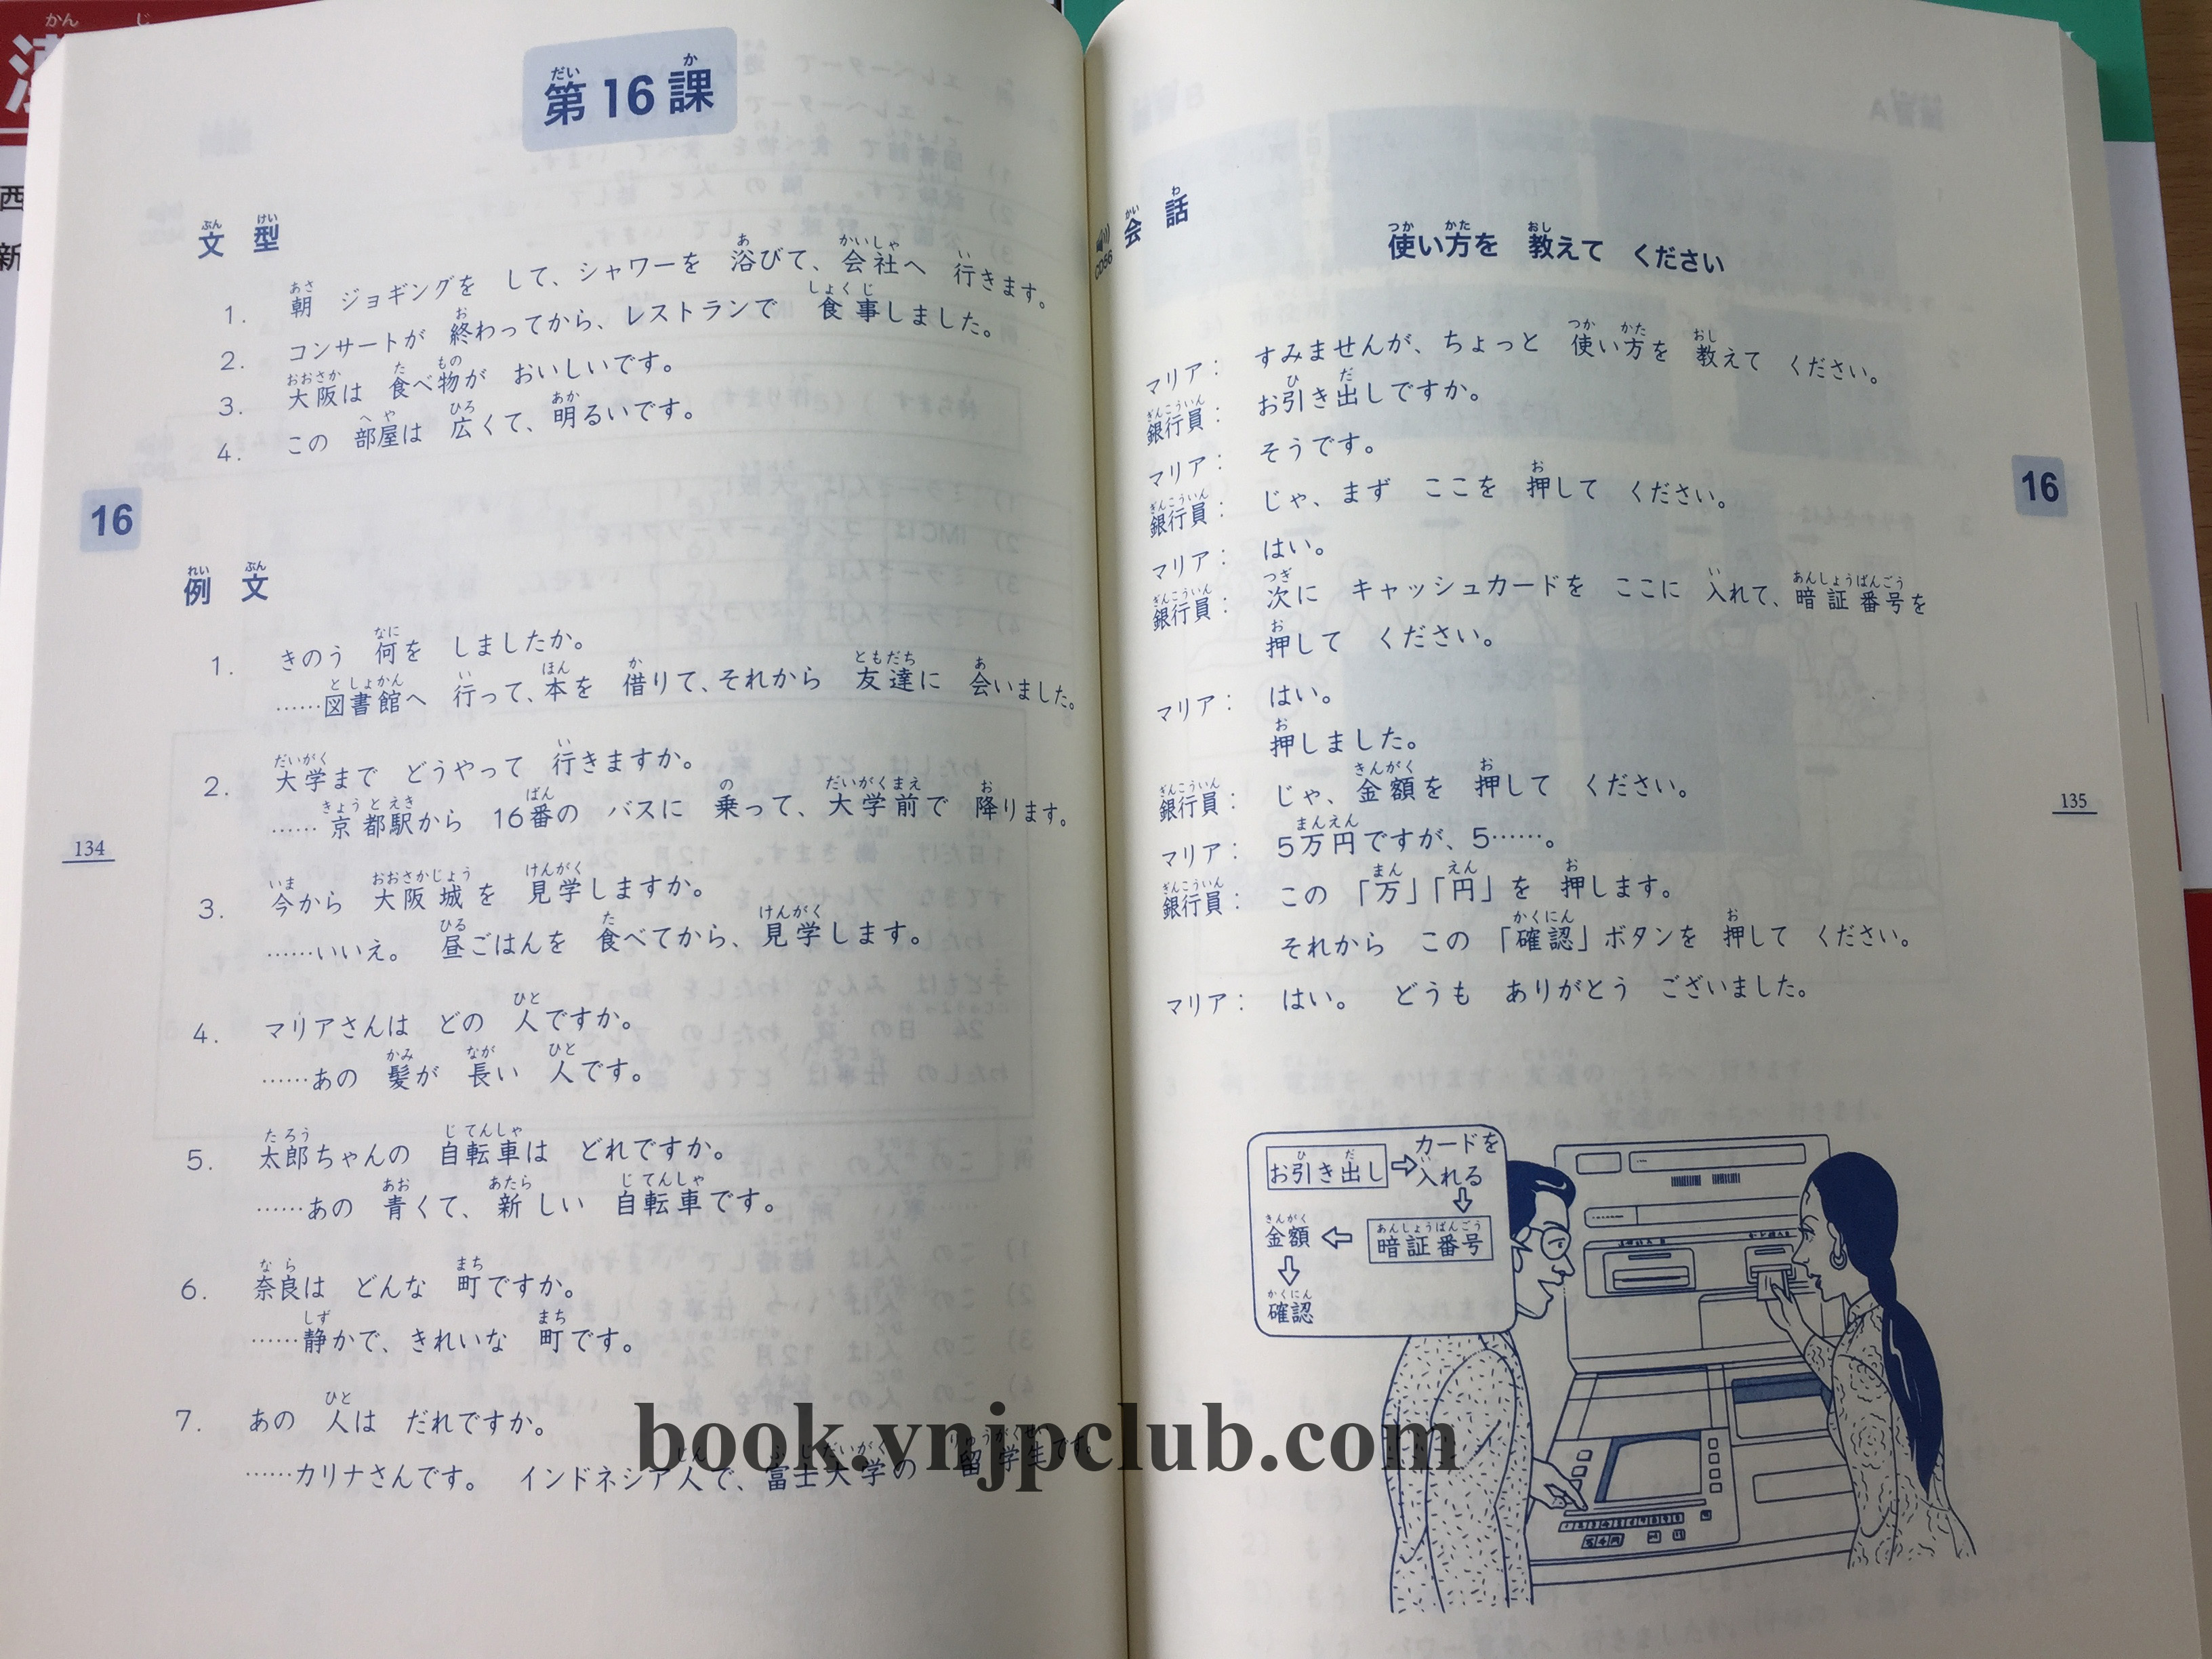 第16課
文型
1. 朝 ジョギングを して、シャワーを 浴びて、会社へ 行きます。
2. コンサートが 終わってから、レストランで 食事しました。
3. 大阪は 食べ物が おいしいです。
4. この 部屋は 広くて、明るいです。
16
例文
1. きのう 何を しましたか。
……図書館へ 行って、本を 借りて、それから 友達に 会いました。
2. 大学まで どうやって 行きますか。
……京都駅から 16番の バスに 乗って、大学前で 降ります。
134
3. 今から 大阪城を 見学しますか。
……いいえ。 昼ごはんを 食べてから、見学します。
4. マリアさんは どの 人ですか。
……あの 髪が 長い 人です。
5. 太郎ちゃんの 自転車は どれですか。
……あの 青くて、新しい 自転車です。
6. 奈良は どんな 町ですか。
……静かで、きれいな 町です。
7. あの 人は だれですか。
……カリナさんです。 インドネシア人で、富士大学の 留学生です。
会話
CD56
使い方を 教えて ください
マリア： すみませんが、ちょっと 使い方を 教えて ください。
銀行員： お引き出しですか。
マリア： そうです。
銀行員： じゃ、まず ここを 押して ください。
マリア： はい。
銀行員： 次に キャッシュカードを ここに 入れて、暗証番号を
押して ください。
マリア： はい。
押しました。
銀行員： じゃ、金額を 押して ください。
マリア： 5万円ですが、5……。
銀行員： この 「万」「円」を 押します。
それから この 「確認」ボタンを 押して ください。
マリア： はい。 どうも ありがとう ございました。
16
135
お引き出し⇨カードを
入れる
金額⇦暗証番号
確認
book.vnjpclub.com
西
新